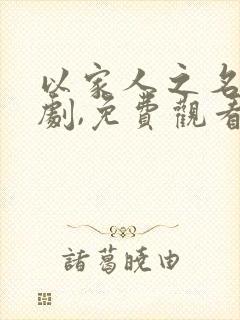 以家人之名
劇,免費觀看
諸葛曉由